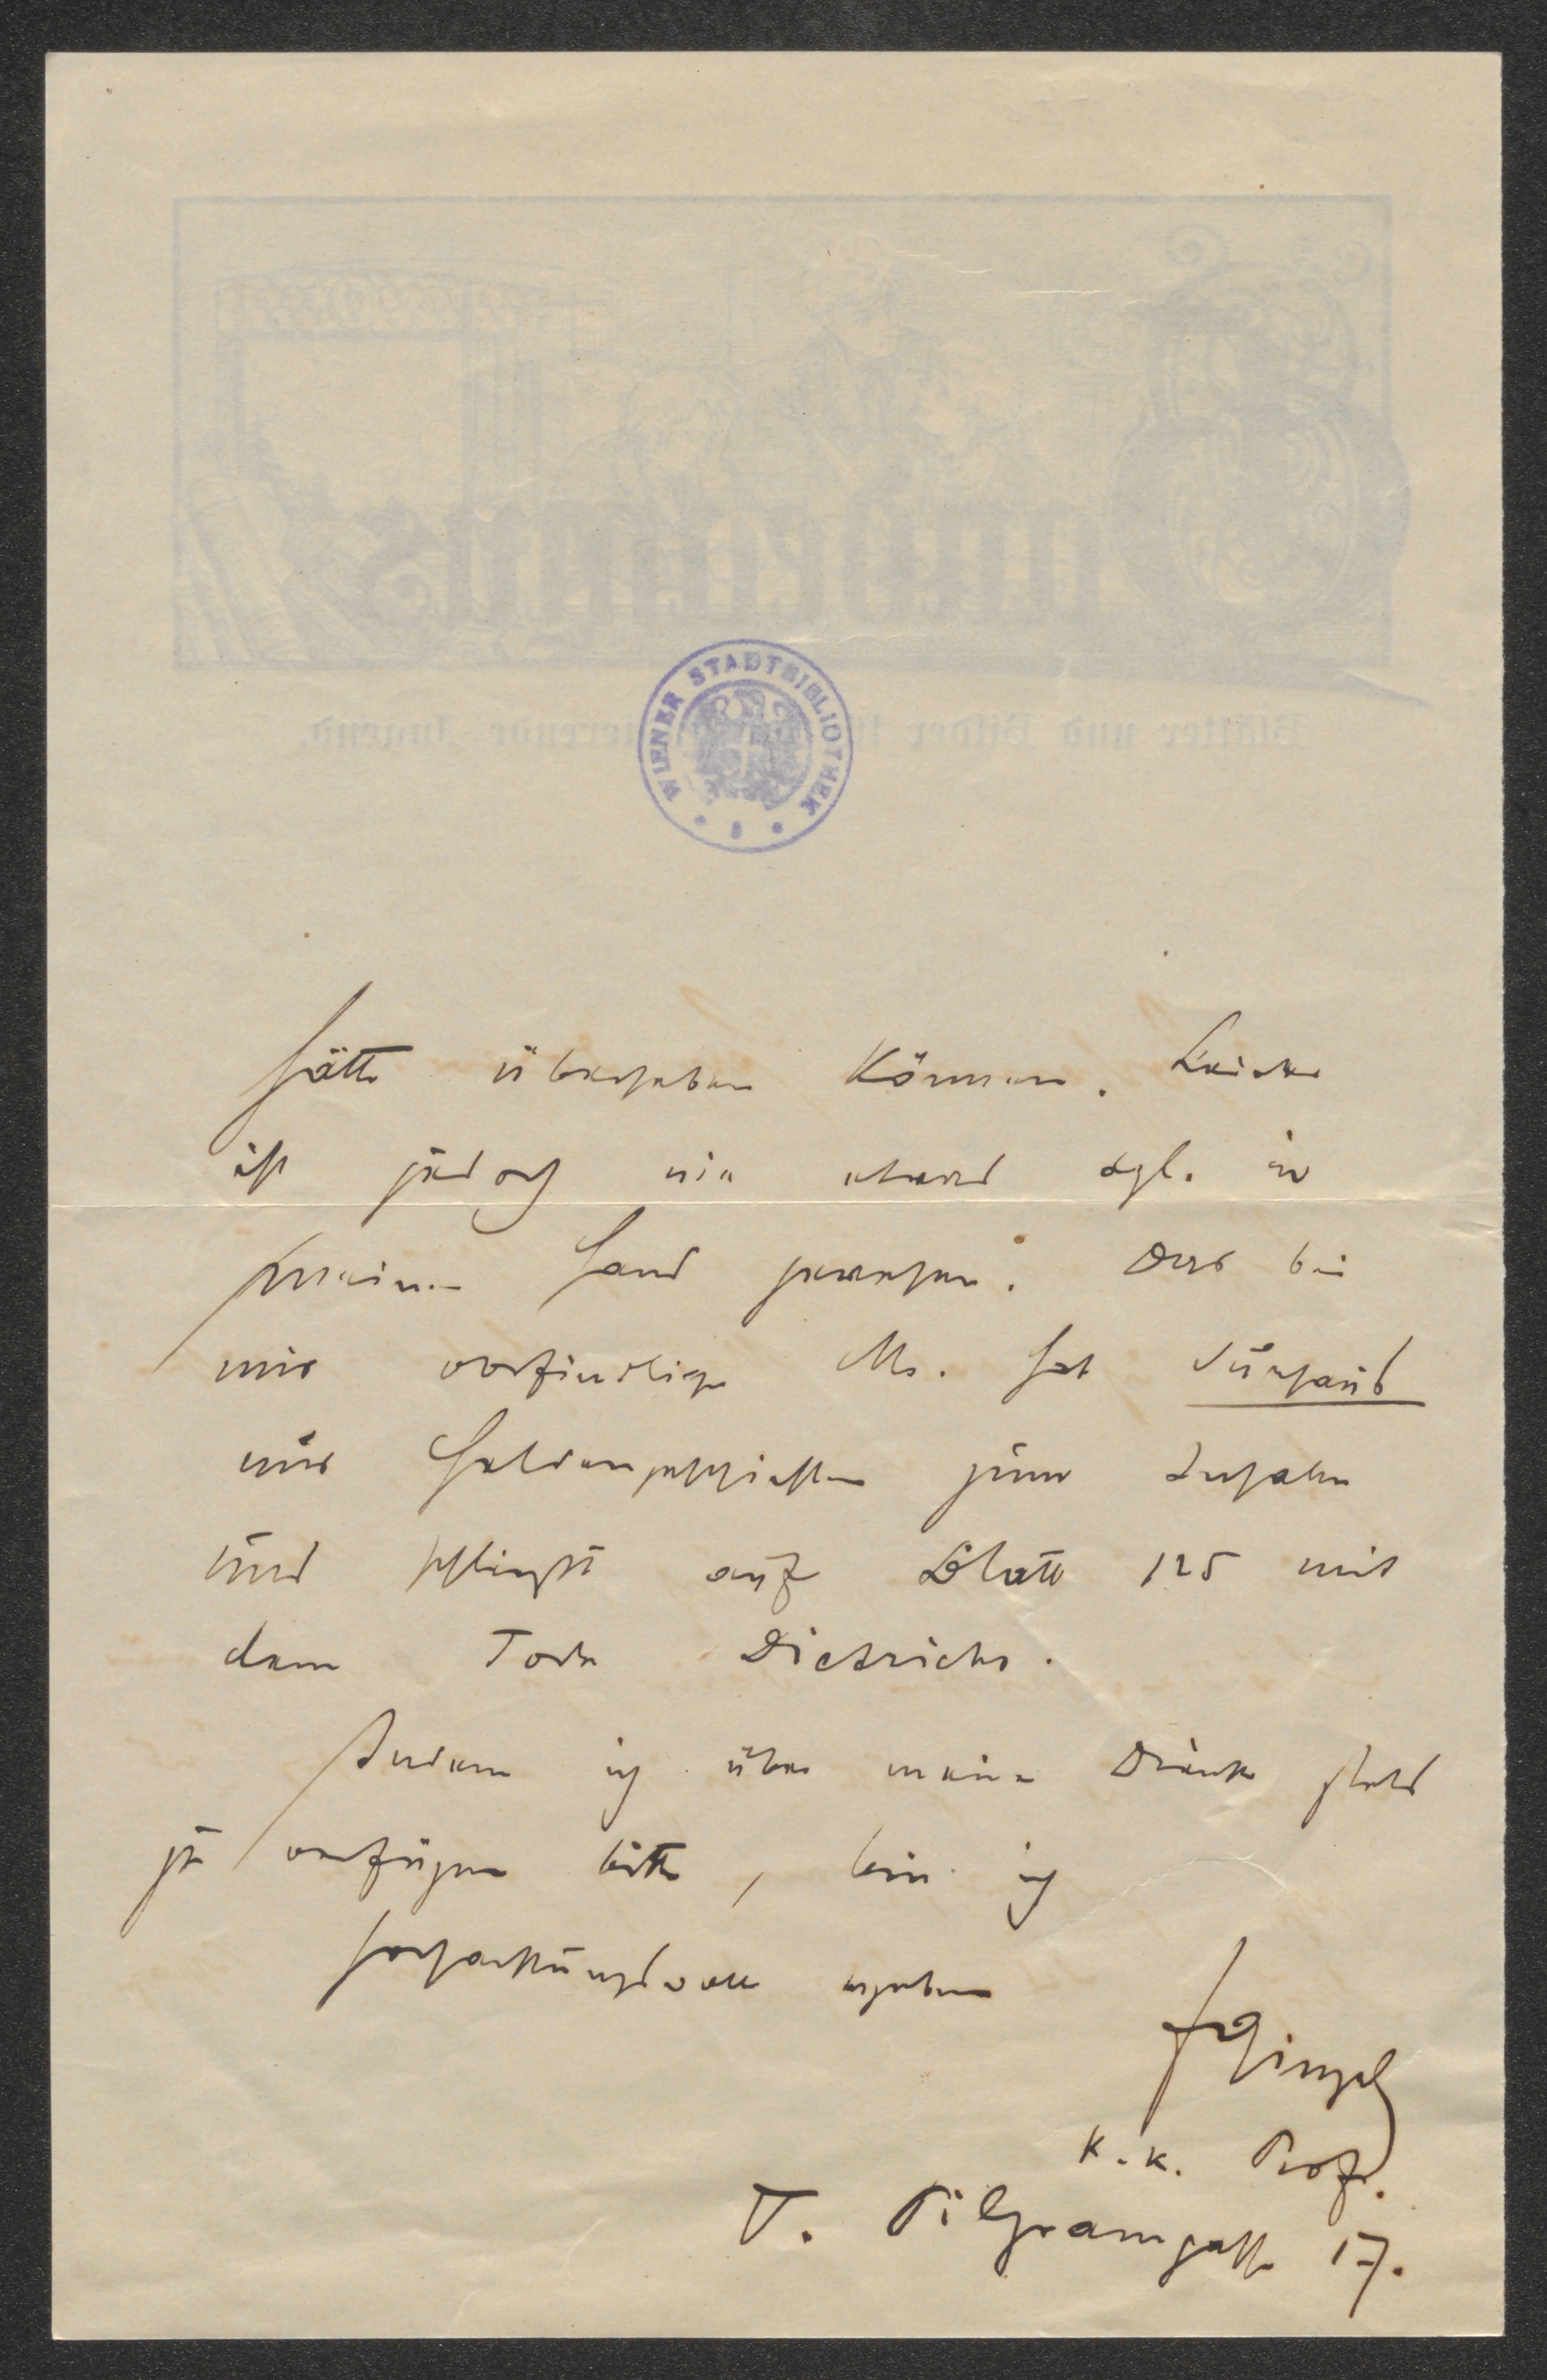 WIENER STADTBIBLIOTHEK
hätte übergeben können. Leider
ist jedoch nie etwas dgl. in
meiner Hand gewesen. Das bei
mir vorfindliche Ms. hat durchaus
nur Heldengeschichten zum Inhalte
und schließt auf Blatt 125 mit
dem Tode Dietrichs.
Indem ich über meine Dienste stets
zu verfügen bitte, bin ich
hochachtungsvoll ergeben
k. k. Prof.
V. Pilgramgasse 17.